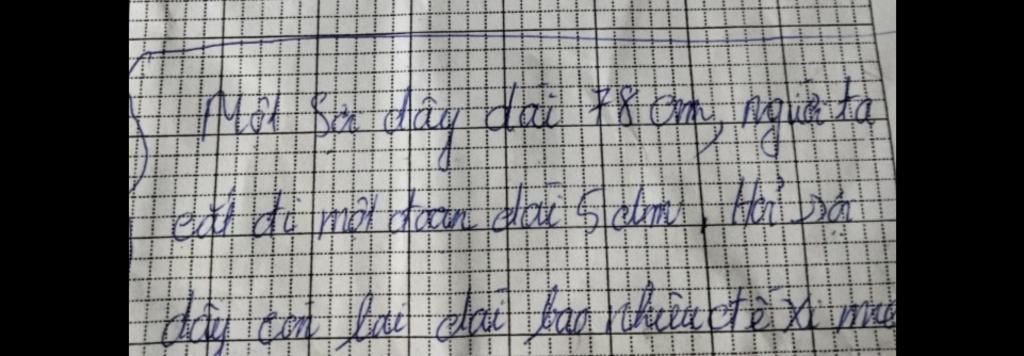 Một Sợi dây dài 78 cm, người ta
cắt đi một đoạn dài 5 dm, Hỏi sợi
dây còn lại dài bao nhiêu đề xi mét